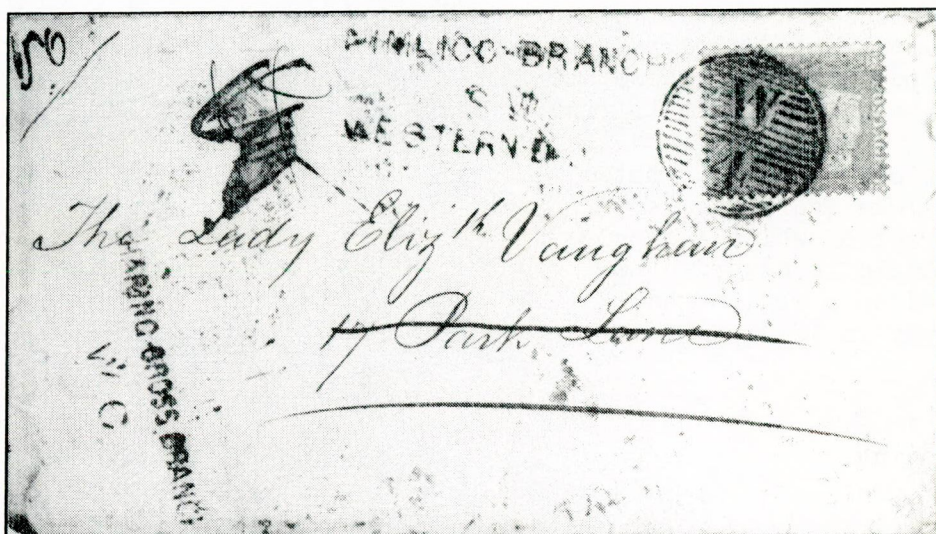 PIMLICO-BRANCH
S W
WESTERN-D.
W
The Lady Elizth Vaughan
17 Park Lane
CHARING-CROSS.BRANCH
W C